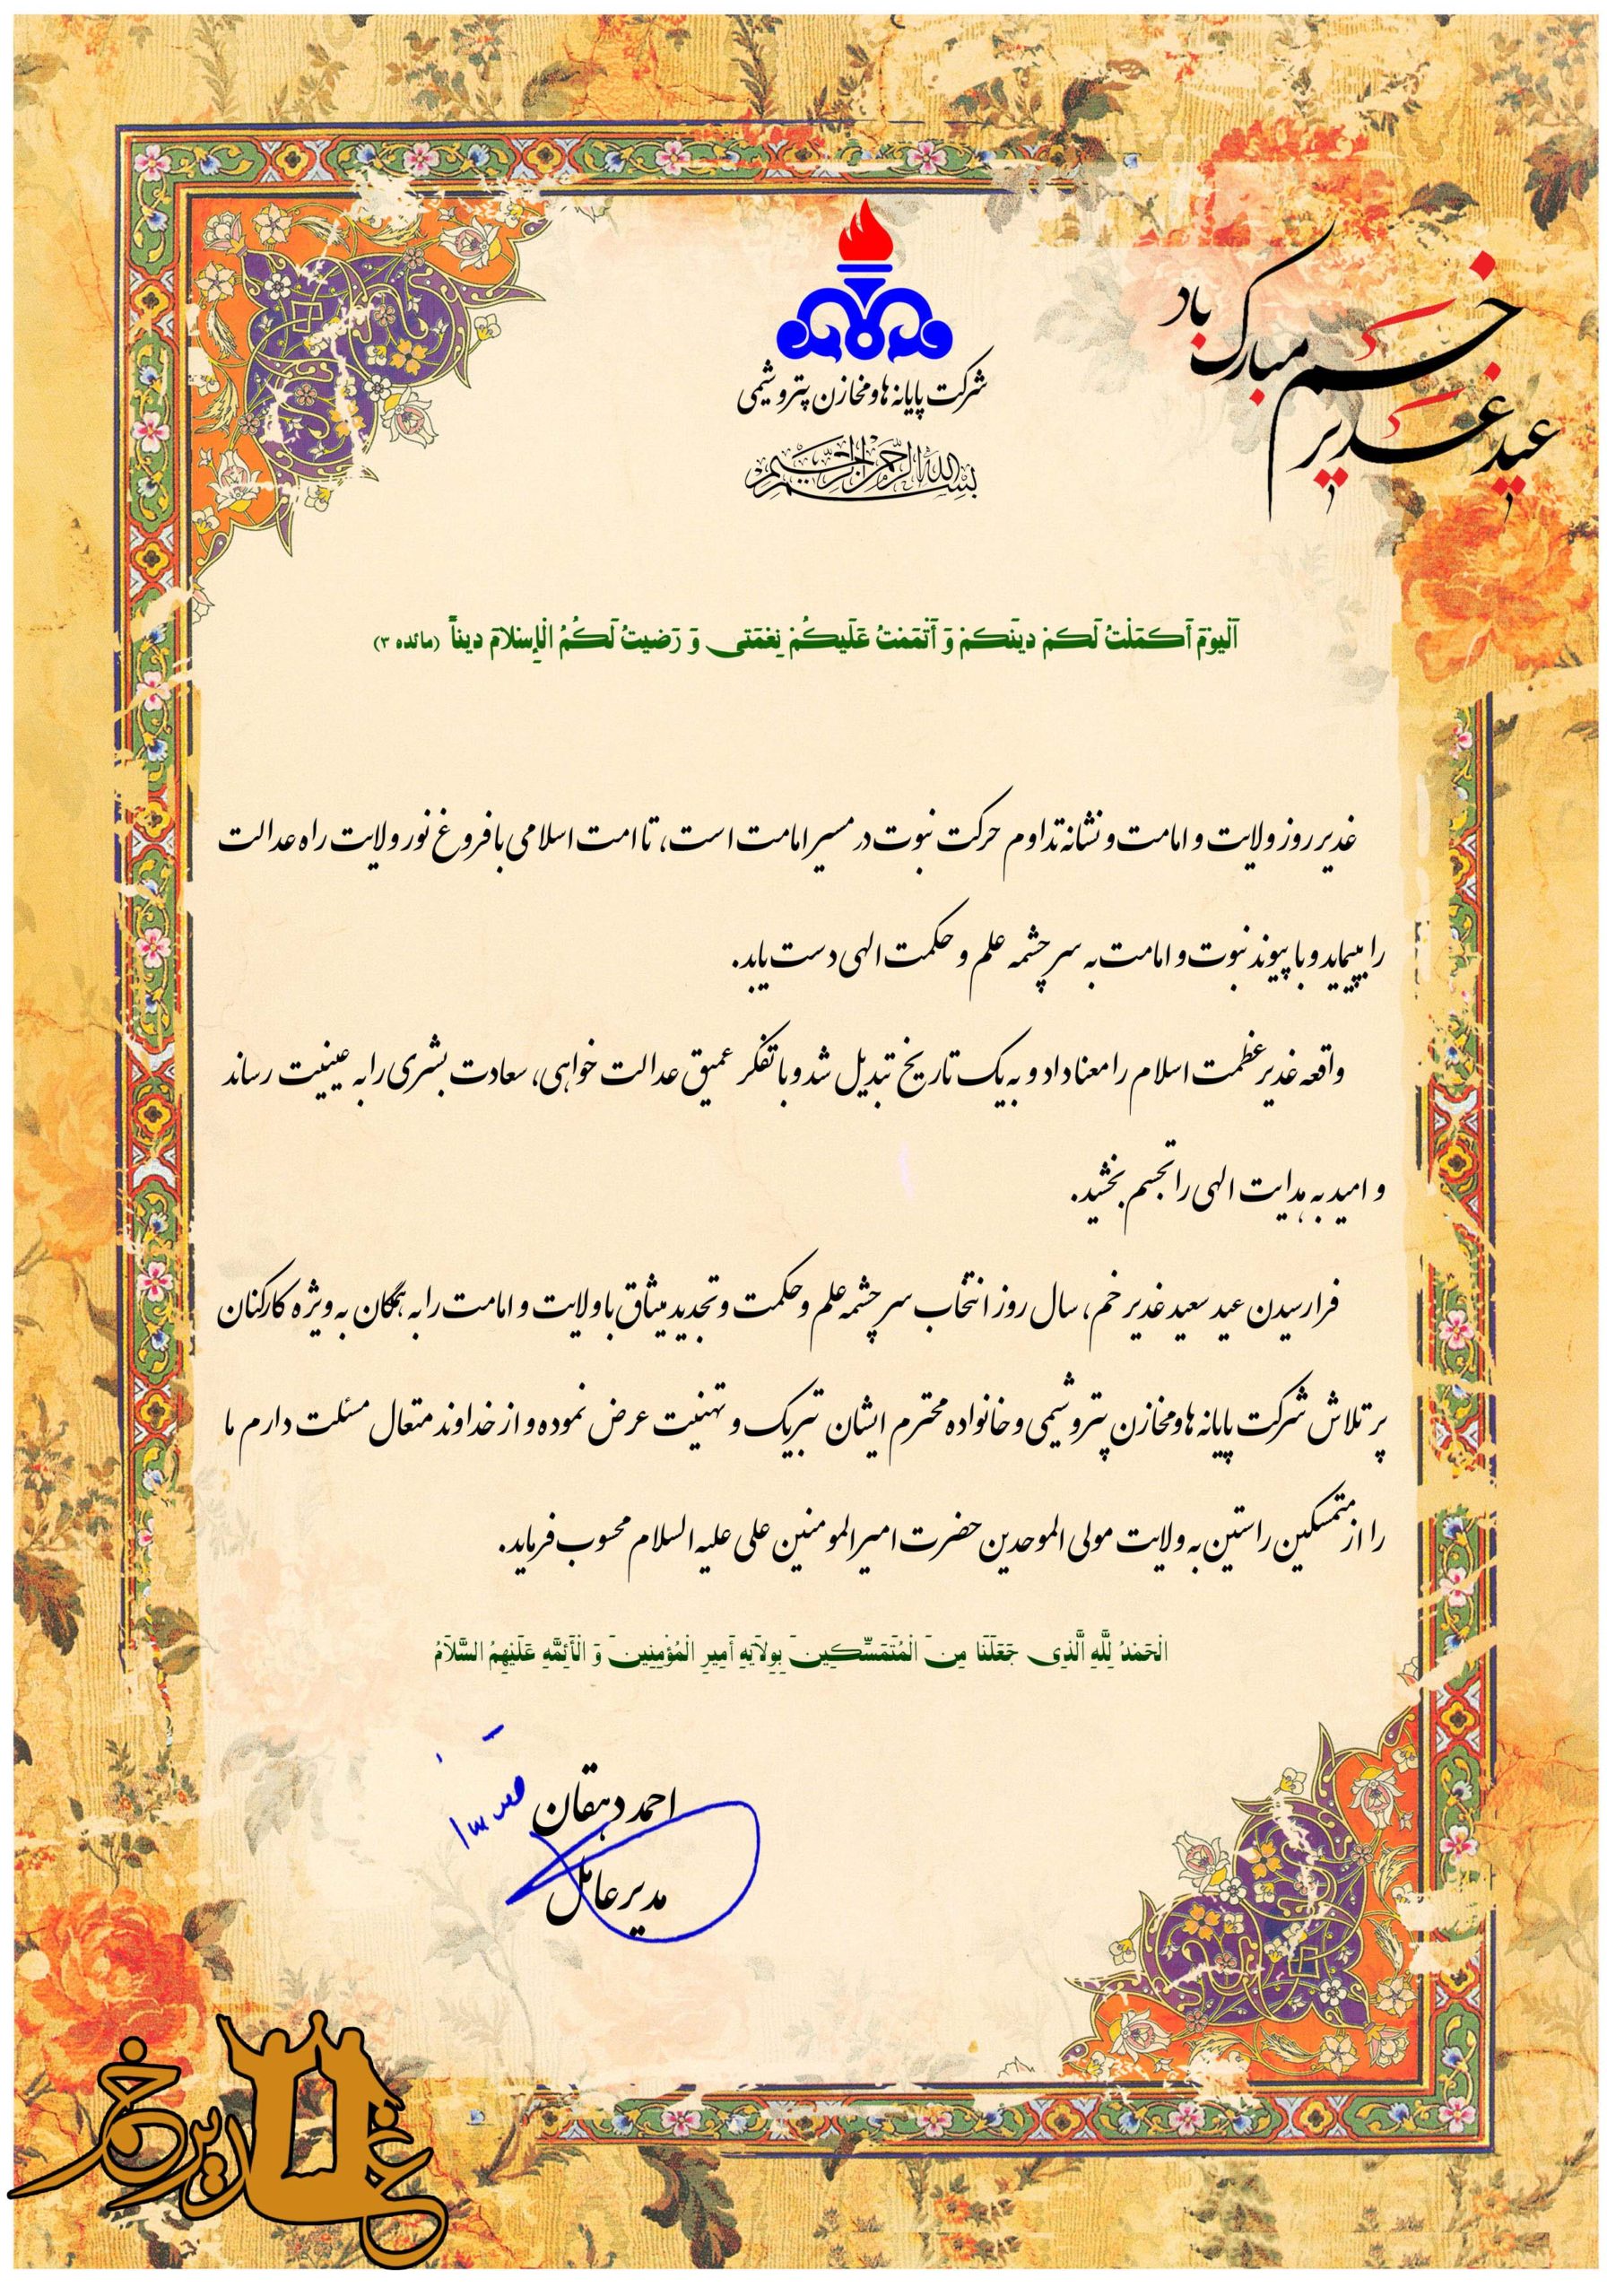 عید غدیر خم مبارک باد
شرکت پایانه ها و مخازن پتروشیمی
بسم الله الرحمن الرحیم
اَلْیَوْمَ اَکمَلْتُ لَکمْ دینَکمْ وَ اَتْمَمْتُ عَلَیکُمْ نِعْمَتی وَ رَضیتُ لَکُمُ الْاِسْلامَ دیناً (مائده ۳)
غدیر روز ولایت و امامت و نشانه تداوم حرکت نبوت در مسیر امامت است، تا امت اسلامی با فروغ نور ولایت راه عدالت
را بپیماید و با پیوند نبوت و امامت به سرچشمه علم و حکمت الهی دست یابد.
واقعه غدیر عظمت اسلام را معنا داد و به یک تاریخ تبدیل شد و با تفکر عمیق عدالت خواهی، سعادت بشری را به عینیت رساند
و امید به هدایت الهی را تجسم بخشید.
فرارسیدن عید سعید غدیر خم، سال روز انتخاب سرچشمه علم و حکمت و تجدید میثاق با ولایت و امامت را به همگان به ویژه کارکنان
پر تلاش شرکت پایانه ها و مخازن پتروشیمی و خانواده محترم ایشان تبریک و تهنیت عرض نموده و از خداوند متعال مسئلت دارم ما
را از متمسکین راستین به ولایت مولی الموحدین حضرت امیرالمومنین علی علیه السلام محسوب فرماید.
الْحَمْدُ لِلَّهِ الَّذِی جَعَلَنَا مِنَ الْمُتَمَسِّکِینَ بِوِلاَیَهِ اَمِیرِ الْمُؤْمِنِینَ وَ الْاَئِمَّهِ عَلَیْهِمُ السَّلاَمُ
احمد دهقان
مدیر عامل
غدیر خم